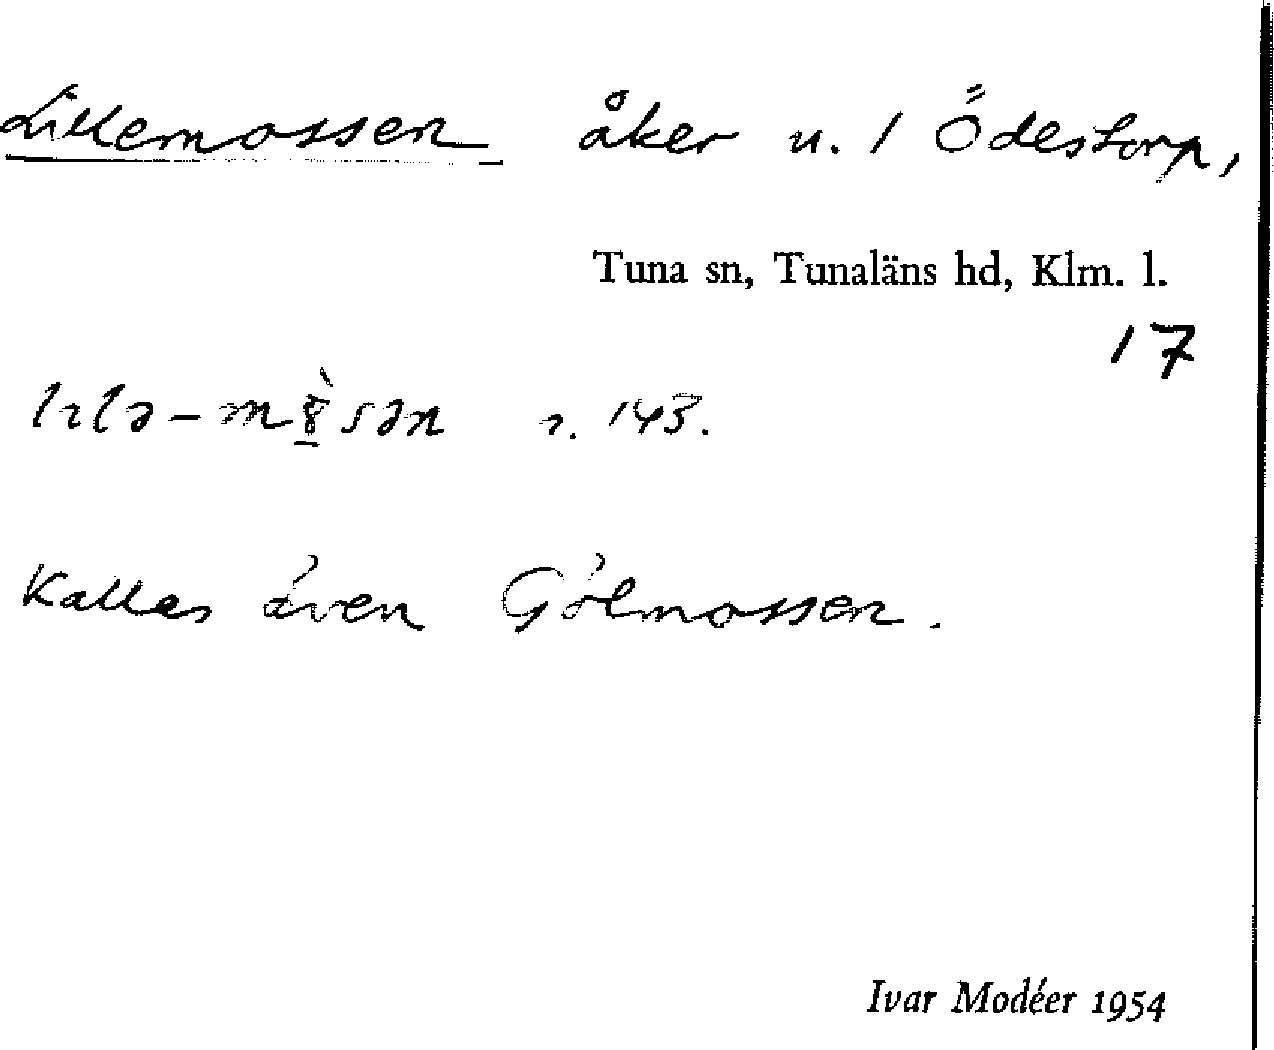 Lillemossen åker u. 1 Ödestorp,
Tuna sn, Tunaläns hd, Klm. l.
17
143.
Kallas även Gölmossen.
Ivar Modéer 1954